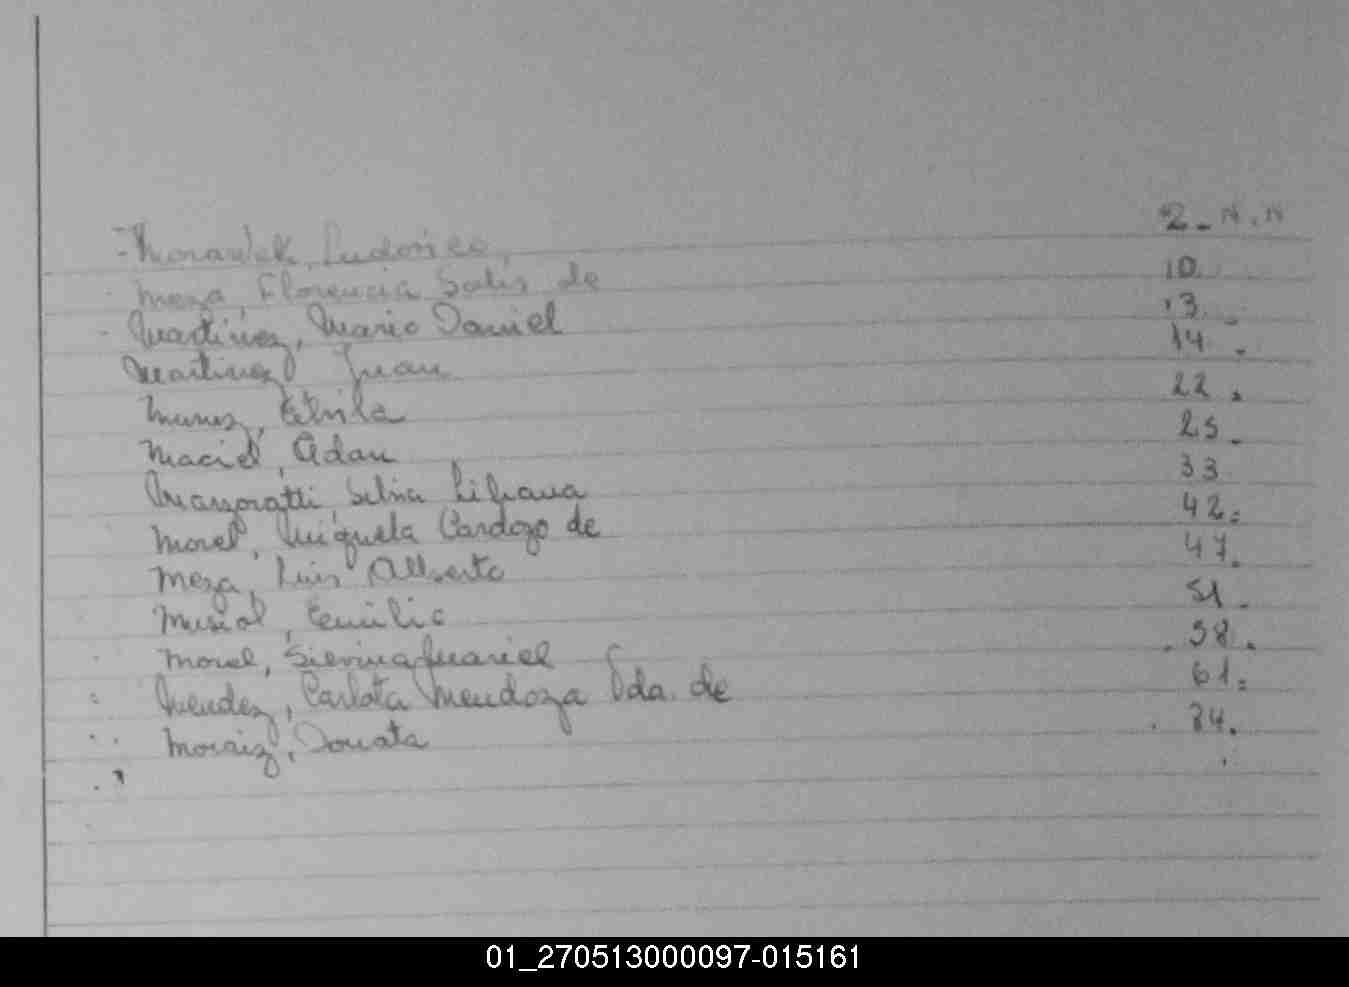 Morawek, Ludovico, 2 - N.N
Meza, Florencia Solis de 10
Martinez, Mario Daniel 13
Martinez Juan 14
Munez, Etvila 22
Maciel, Adan 25
Silvia Liliana 33
Morel, Miguela Cardozo de 42
Meza, Luis Alberto 47
Musial, Emilio 51
Morel, 58
Mendez, Carlota Mendoza Vda. de 61
Moraiz, Donata 84
01_270513000097-015161